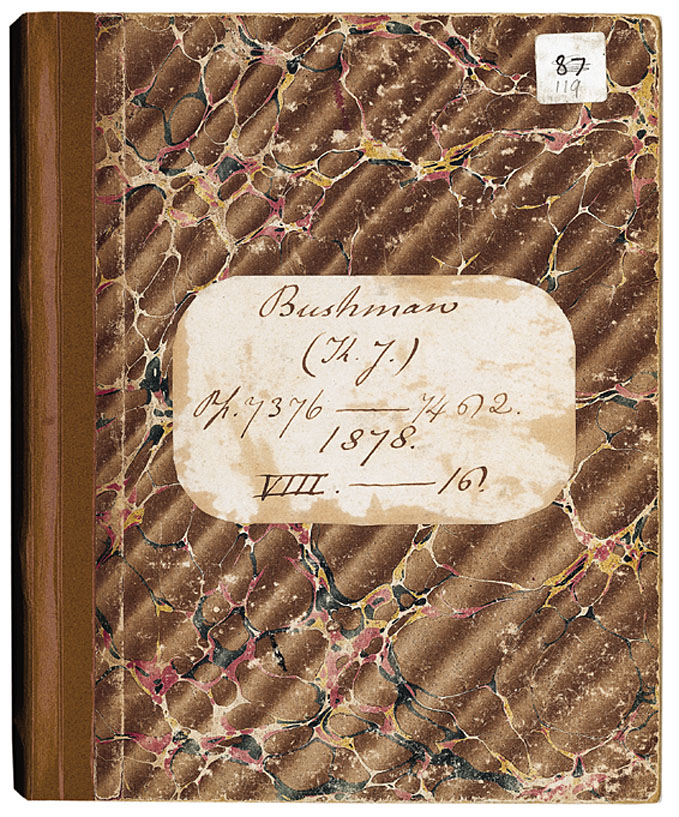 87
119
Bushman
(Kl. J.)
Pp. 7376 — 7462.
1878.
VIII. — 16.